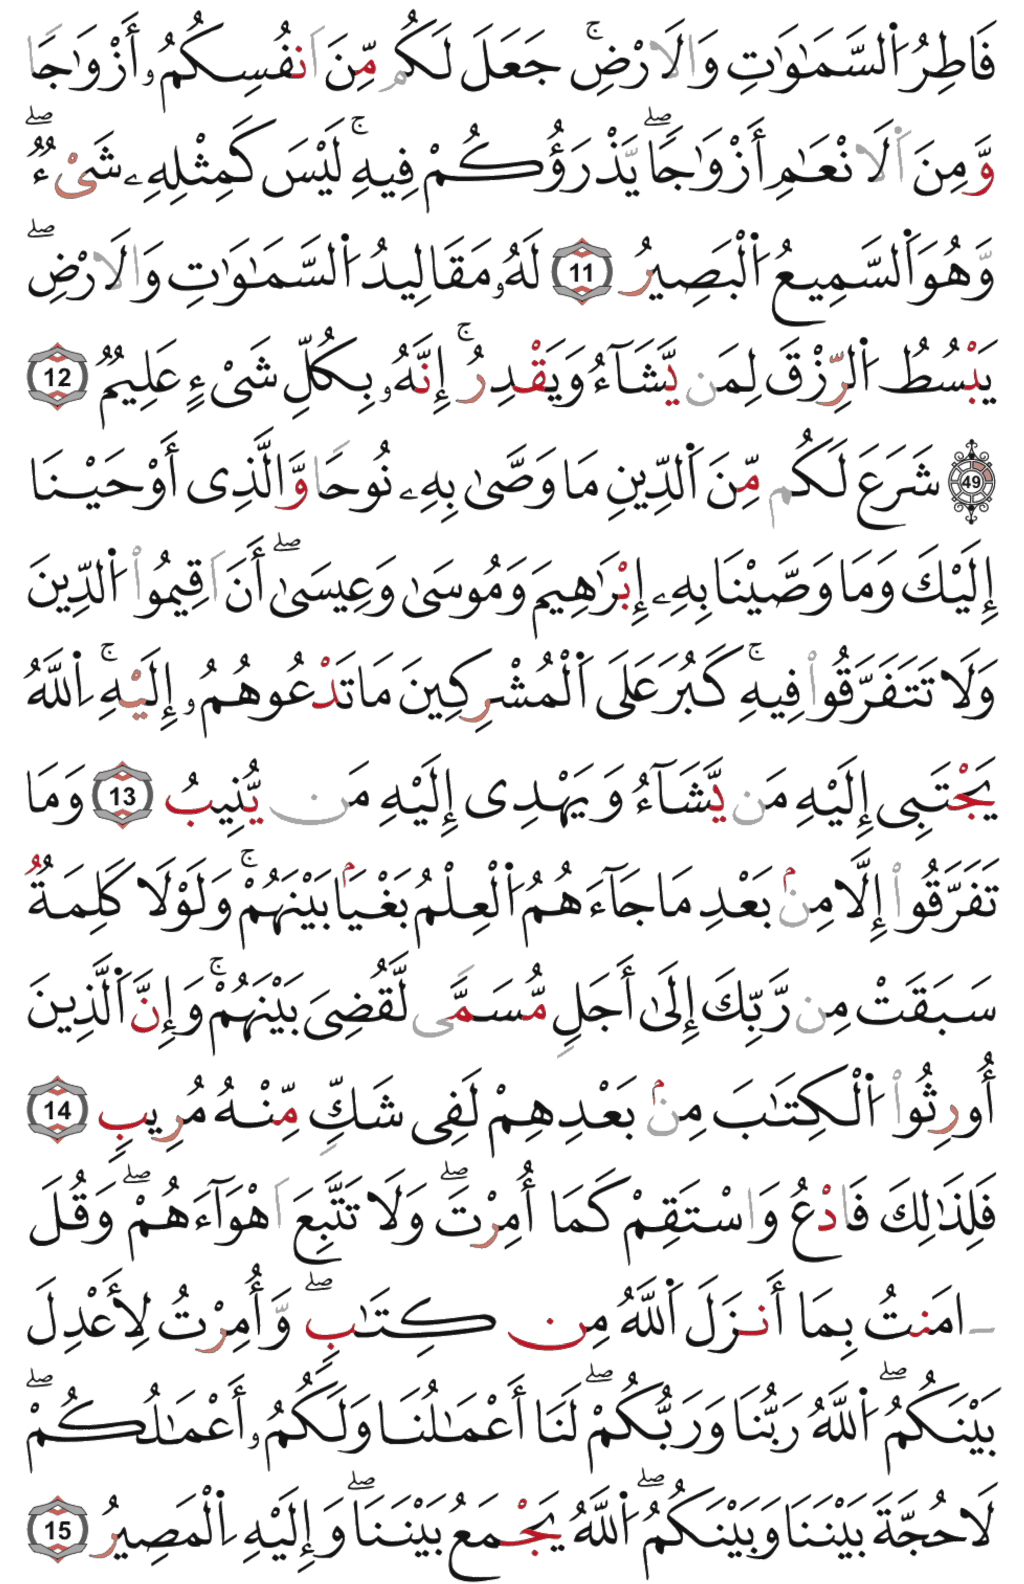 فَاطِرُ اُ۬لسَّمَٰوَٰتِ وَالَارْضِۖ جَعَلَ لَكُم مِّنَ اَنفُسِكُمُۥٓ أَزْوَٰجاٗ
وَّمِنَ اَ۬لَانْعَٰمِ أَزْوَٰجاٗۖ يَّذْرَؤُكُمْ فِيهِۚ لَيْسَ كَمِثْلِهِۦ شَےْءٞۖ
وَّهُوَ اَ۬لسَّمِيعُ اُ۬لْبَصِيرُ 11 لَهُۥ مَقَالِيدُ اُ۬لسَّمَٰوَٰتِ وَالَارْضِۖ
يَبْسُطُ اُ۬لرِّزْقَ لِمَن يَّشَآءُ وَيَقْدِرُۚ إِنَّهُۥ بِكُلِّ شَےْءٍ عَلِيمٞ 12
49 شَرَعَ لَكُم مِّنَ اَ۬لدِّينِ مَا وَصَّىٰ بِهِۦ نُوحاٗ وَّالَّذِى أَوْحَيْنَا
إِلَيْكَ وَمَا وَصَّيْنَا بِهِۦ إِبْرَٰهِيمَ وَمُوسَىٰ وَعِيسَىٰۖ أَنَ اَقِيمُواْ اُ۬لدِّينَ
وَلَا تَتَفَرَّقُواْ فِيهِۚ كَبُرَ عَلَى اَ۬لْمُشْرِكِينَ مَا تَدْعُوهُمُۥٓ إِلَيْهِۚ اِ۬للَّهُ
يَجْتَبِى إِلَيْهِ مَن يَّشَآءُ وَيَهْدِى إِلَيْهِ مَن يُّنِيبُ 13 وَمَا
تَفَرَّقُواْ إِلَّا مِنۢ بَعْدِ مَا جَآءَهُمُ اُ۬لْعِلْمُ بَغْياَۢ بَيْنَهُمْۚ وَلَوْلَا كَلِمَةٞ
سَبَقَتْ مِن رَّبِّكَ إِلَىٰ أَجَلٖ مُّسَمّىٗ لَّقُضِىَ بَيْنَهُمْۚ وَإِنَّ اَ۬لَّذِينَ
أُورِثُواْ اُ۬لْكِتَٰبَ مِنۢ بَعْدِهِمْ لَفِى شَكّٖ مِّنْهُ مُرِيبٖ 14
فَلِذَٰلِكَ فَادْعُ وَاسْتَقِمْ كَمَا أُمِرْتَۖ وَلَا تَتَّبِعَ اَهْوَآءَهُمْۖ وَقُلَ
اٰمَنتُ بِمَا أَنزَلَ اَ۬للَّهُ مِن كِتَٰبٖۖ وَّأُمِرْتُ لِأَعْدِلَ
بَيْنَكُمُۖ اُ۬للَّهُ رَبُّنَا وَرَبُّكُمْۖ لَنَا أَعْمَٰلُنَا وَلَكُمُۥٓ أَعْمَٰلُكُمْۖ
لَا حُجَّةَ بَيْنَنَا وَبَيْنَكُمُۖ اُ۬للَّهُ يَجْمَعُ بَيْنَنَاۖ وَإِلَيْهِ اِ۬لْمَصِيرُ 15